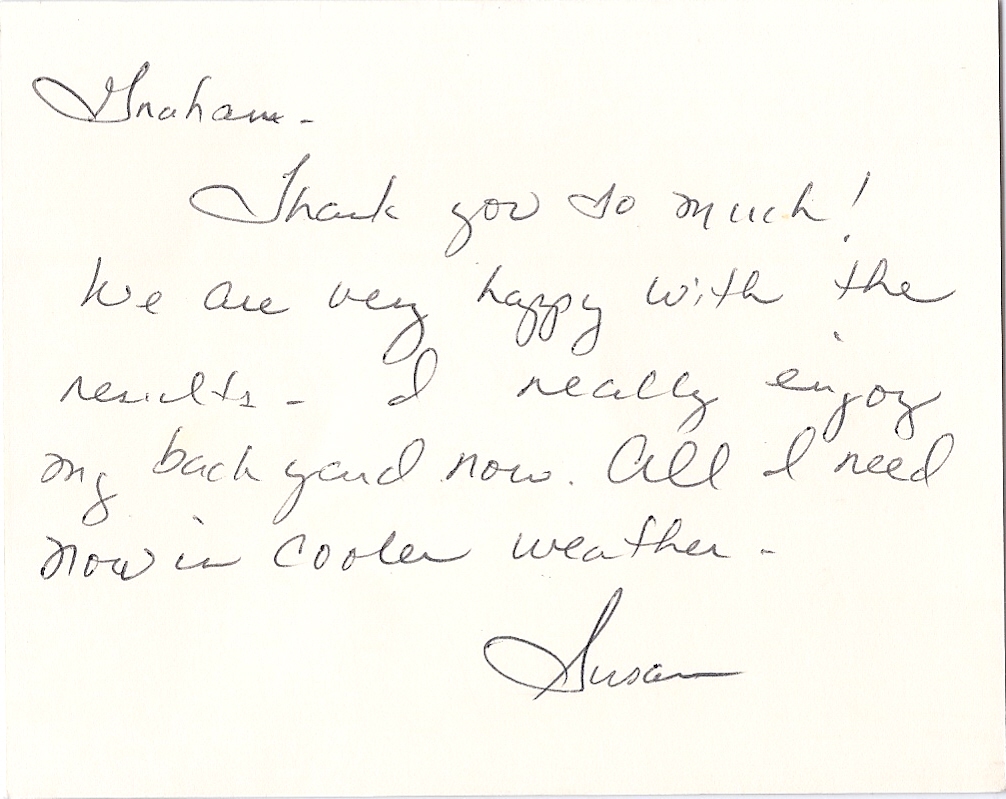 Graham -
Thank you so much!
We are very happy with the
results - I really enjoy
my back yard now. All I need
now is cooler weather -
Susan